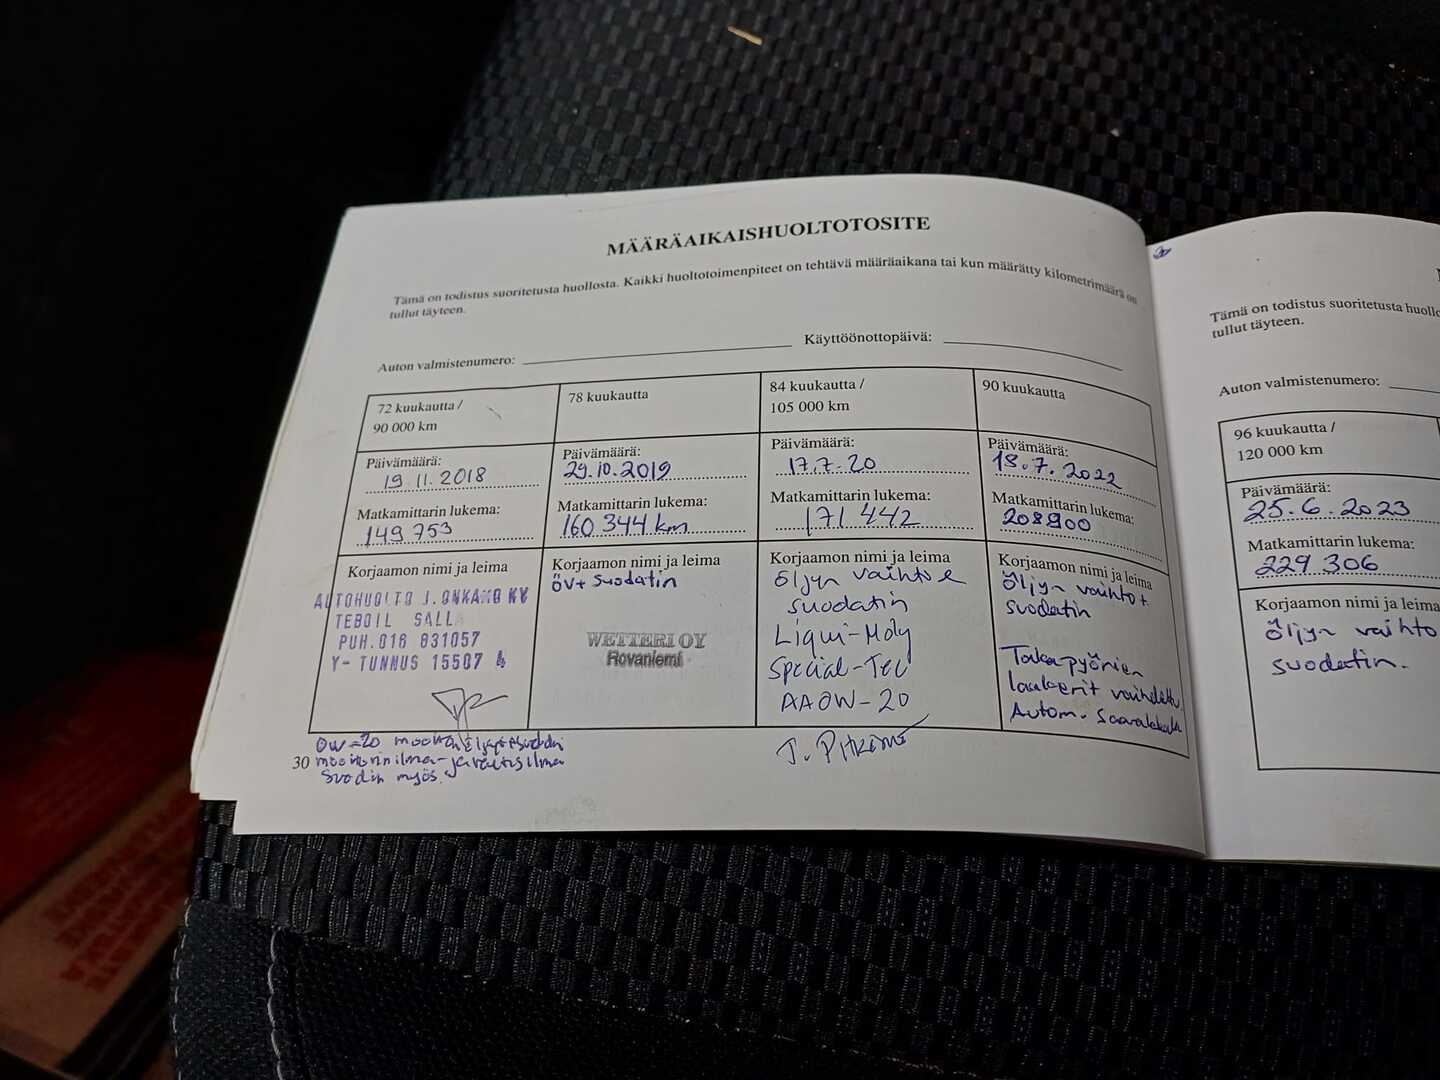 MÄÄRÄAIKAISHUOLTOTOSITE
Tämä on todistus suoritetusta huollosta. Kaikki huoltotoimenpiteet on tehtävä määräaikana tai kun määrätty kilometrimäärä on
tullut täyteen.
Auton valmistenumero:
Käyttöönottopäivä:
72 kuukautta /
90 000 km
Päivämäärä:
19.11.2018
Matkamittarin lukema:
149 753
Korjaamon nimi ja leima
AUTOHUOLTO J.ONKAMO KY
TEBOIL SALLA
PUH.016 831057
Y-TUNNUS 15507
0W-20
moottorinilma- ja raitisilma
suodin myös.
78 kuukautta
Päivämäärä:
29.10.2019
Matkamittarin lukema:
160 344 km
Korjaamon nimi ja leima
öv+ suodatin
WETTERI OY
Rovaniemi
84 kuukautta /
105 000 km
Päivämäärä:
17.7.20
Matkamittarin lukema:
171 442
Korjaamon nimi ja leima
öljyn vaihto &
suodatin
Liqui-Moly
Special-Tec
AA 0W-20
90 kuukautta
Päivämäärä:
18.7.2022
Matkamittarin lukema:
208900
Korjaamon nimi ja leima
Öljyn vaihto +
suodatin
Takapyörien
laakerit vaihdettu
Autom.
30
Tämä on todistus suoritetusta
tullut täyteen.
Auton valmistenumero:
96 kuukautta /
120 000 km
Päivämäärä:
25.6.2023
Matkamittarin lukema:
229 306
Korjaamon nimi ja leima
Öljyn vaihto
suodatin.